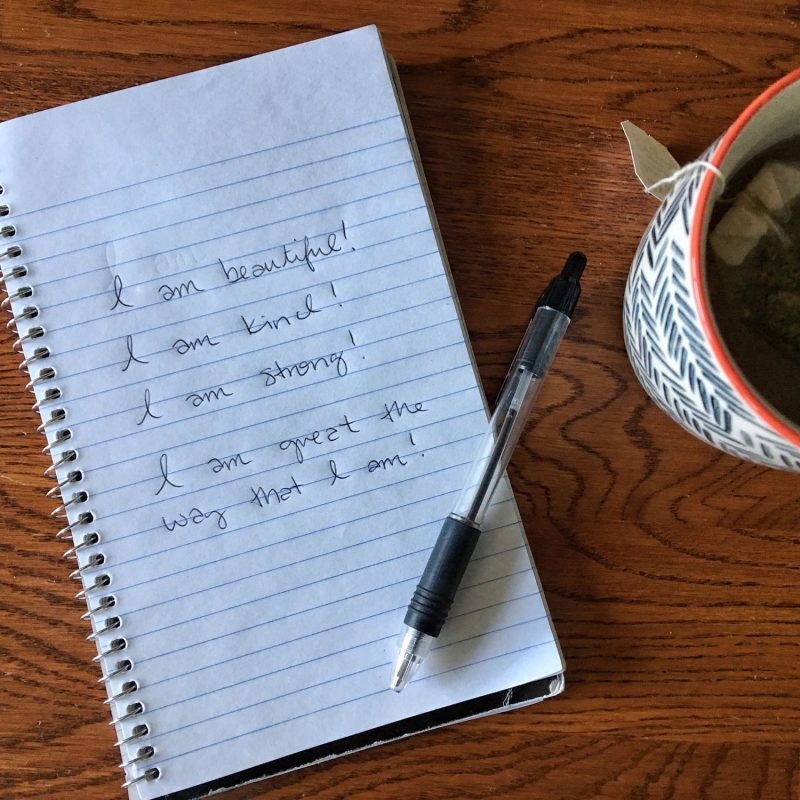 I am beautiful!
I am kind!
I am strong!
I am great the
way that I am!